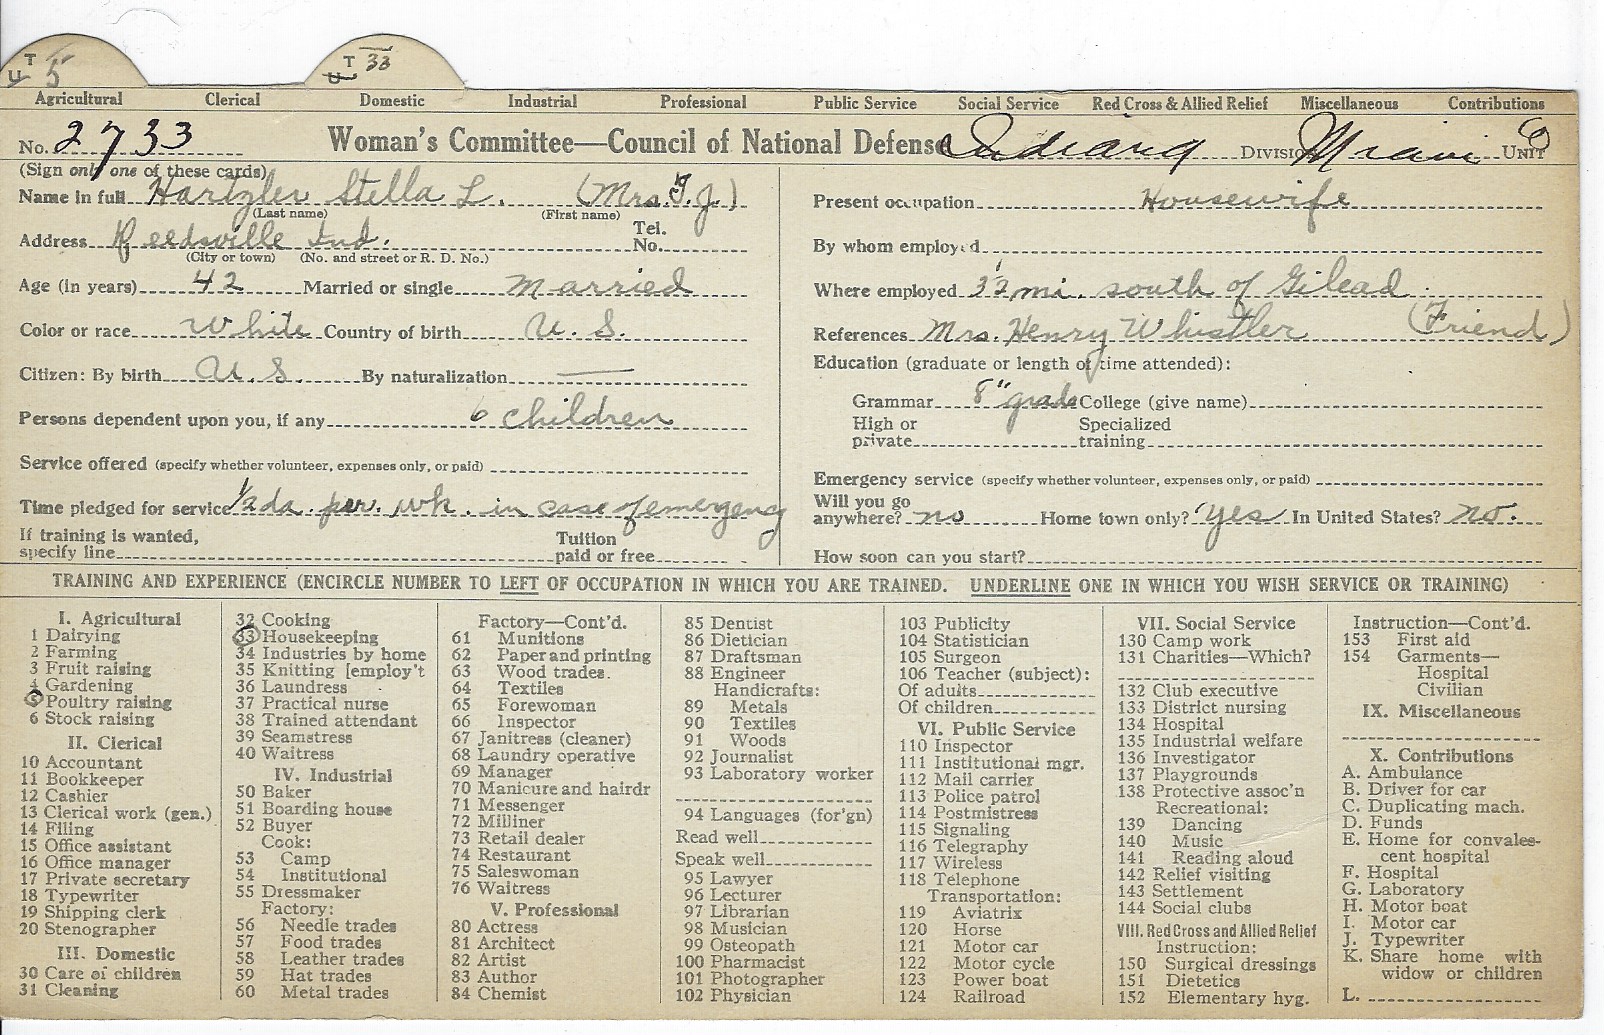 U T 5
U T 33
Agricultural Clerical Domestic Industrial Professional Public Service Social Service Red Cross & Allied Relief Miscellaneous Contributions
No. 2733 Woman's Committee—Council of National Defense Indiana DIVISION Miami UNIT 6
(Sign only one of these cards)
Name in full Hartzler Stella L. (Mrs. T. J.)
(Last name) (First name)
Address Reedsville Ind. Tel. No.
(City or town) (No. and street or R. D. No.)
Age (in years) 42 Married or single Married
Color or race White Country of birth U. S.
Citizen: By birth U. S. By naturalization —
Persons dependent upon you, if any 6 children
Service offered (specify whether volunteer, expenses only, or paid)
Time pledged for service 1/2 da. per. wk. in case of emergency
If training is wanted, specify line Tuition paid or free
Present occupation Housewife
By whom employed
Where employed 3 1/2 mi. south of Gilead
References Mrs. Henry Whistler (Friend)
Education (graduate or length of time attended):
Grammar 8" grade College (give name)
High or private Specialized training
Emergency service (specify whether volunteer, expenses only, or paid)
Will you go anywhere? no Home town only? Yes In United States? no.
How soon can you start?
TRAINING AND EXPERIENCE (ENCIRCLE NUMBER TO LEFT OF OCCUPATION IN WHICH YOU ARE TRAINED. UNDERLINE ONE IN WHICH YOU WISH SERVICE OR TRAINING)
I. Agricultural
1 Dairying
2 Farming
3 Fruit raising
4 Gardening
5 Poultry raising
6 Stock raising
II. Clerical
10 Accountant
11 Bookkeeper
12 Cashier
13 Clerical work (gen.)
14 Filing
15 Office assistant
16 Office manager
17 Private secretary
18 Typewriter
19 Shipping clerk
20 Stenographer
III. Domestic
30 Care of children
31 Cleaning
32 Cooking
33 Housekeeping
34 Industries by home
35 Knitting [employ't
36 Laundress
37 Practical nurse
38 Trained attendant
39 Seamstress
40 Waitress
IV. Industrial
50 Baker
51 Boarding house
52 Buyer
Cook:
53 Camp
54 Institutional
55 Dressmaker
Factory:
56 Needle trades
57 Food trades
58 Leather trades
59 Hat trades
60 Metal trades
Factory—Cont'd.
61 Munitions
62 Paper and printing
63 Wood trades.
64 Textiles
65 Forewoman
66 Inspector
67 Janitress (cleaner)
68 Laundry operative
69 Manager
70 Manicure and hairdr
71 Messenger
72 Milliner
73 Retail dealer
74 Restaurant
75 Saleswoman
76 Waitress
V. Professional
80 Actress
81 Architect
82 Artist
83 Author
84 Chemist
85 Dentist
86 Dietician
87 Draftsman
88 Engineer
Handicrafts:
89 Metals
90 Textiles
91 Woods
92 Journalist
93 Laboratory worker
94 Languages (for'gn)
Read well
Speak well
95 Lawyer
96 Lecturer
97 Librarian
98 Musician
99 Osteopath
100 Pharmacist
101 Photographer
102 Physician
103 Publicity
104 Statistician
105 Surgeon
106 Teacher (subject):
Of adults
Of children
VI. Public Service
110 Inspector
111 Institutional mgr.
112 Mail carrier
113 Police patrol
114 Postmistress
115 Signaling
116 Telegraphy
117 Wireless
118 Telephone
Transportation:
119 Aviatrix
120 Horse
121 Motor car
122 Motor cycle
123 Power boat
124 Railroad
VII. Social Service
130 Camp work
131 Charities—Which?
132 Club executive
133 District nursing
134 Hospital
135 Industrial welfare
136 Investigator
137 Playgrounds
138 Protective assoc'n
Recreational:
139 Dancing
140 Music
141 Reading aloud
142 Relief visiting
143 Settlement
144 Social clubs
VIII. Red Cross and Allied Relief
Instruction:
150 Surgical dressings
151 Dietetics
152 Elementary hyg.
Instruction—Cont'd.
153 First aid
154 Garments—
Hospital
Civilian
IX. Miscellaneous
X. Contributions
A. Ambulance
B. Driver for car
C. Duplicating mach.
D. Funds
E. Home for convales-
cent hospital
F. Hospital
G. Laboratory
H. Motor boat
I. Motor car
J. Typewriter
K. Share home with
widow or children
L.